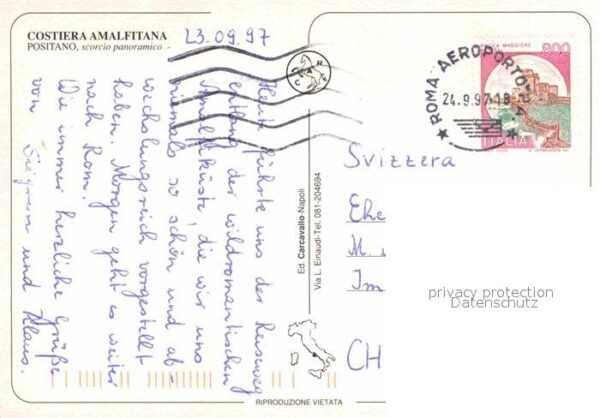 COSTIERA AMALFITANA
POSITANO, scorcio panoramico
23.09.97
Heute führte uns der Reiseweg
entlang der wildromantischen
Amalfiküste, die wir uns
niemals so schön und ab-
wechslungsreich vorgestellt
haben. Morgen geht es weiter
nach Rom.
Wie immer herzliche Grüße
von und Klaus.
CAR
Ed. Carcavallo-Napoli
Via L. Einaudi-Tel. 081-204694
RIPRODUZIONE VIETATA
ROCCA MAGGIORE
800
ITALIA
ROMA AEROPORTO
24.9.97-18
Svizzera
Ehe
M.
Im
CH
privacy protection
Datenschutz